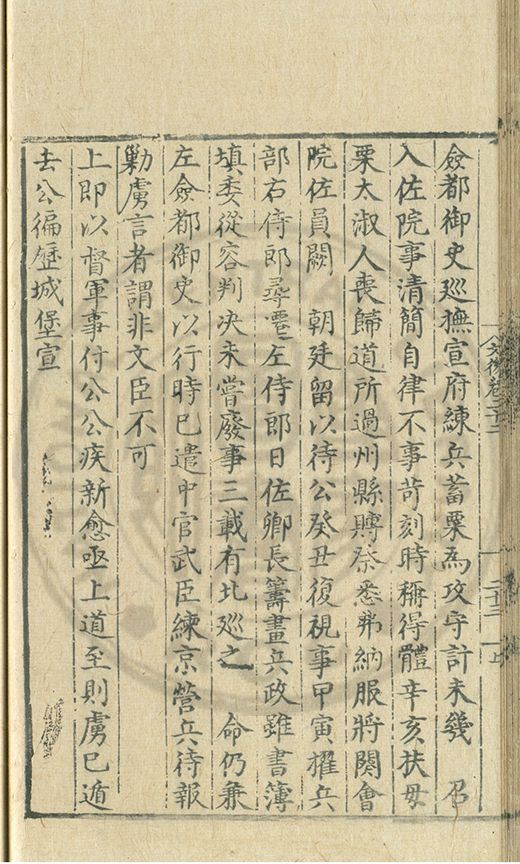 僉都御史巡撫宣府練兵蓄粟為攻守計未幾　召
入佐院事清簡自律不事苛刻時稱得體辛亥扶母
栗太淑人喪歸道所過州縣賻祭悉弗納服將闋會
院佐員闕　朝廷留以待公癸丑復視事甲寅擢兵
部右侍郎尋遷左侍郎日佐卿長籌畫兵政雖書簿
填委從容判决未嘗廢事三載有北巡之　命仍兼
左僉都御史以行時已遣中官武臣練京營兵待報
勦虜言者謂非文臣不可
上即以督軍事付公公疾新愈亟上道至則虜已遁
去公徧歷城堡宣